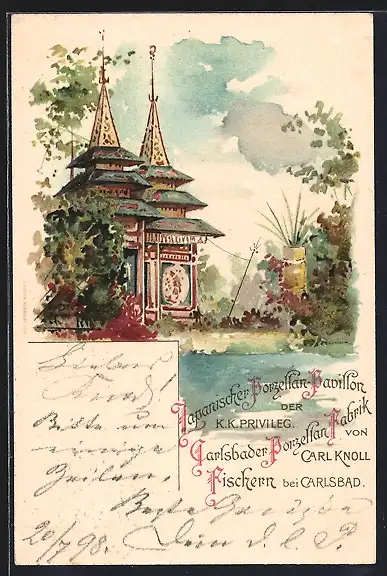 Japanischer Porzellan-Pavillon
DER
K.K. PRIVILEG.
Carlsbader Porzellan Fabrik
VON
CARL KNOLL
Fischern bei CARLSBAD.
Liebes
Kind!
Bitte um
einige
Zeilen.
Beste Grüsse
20/7 98. Dein d. l. P.